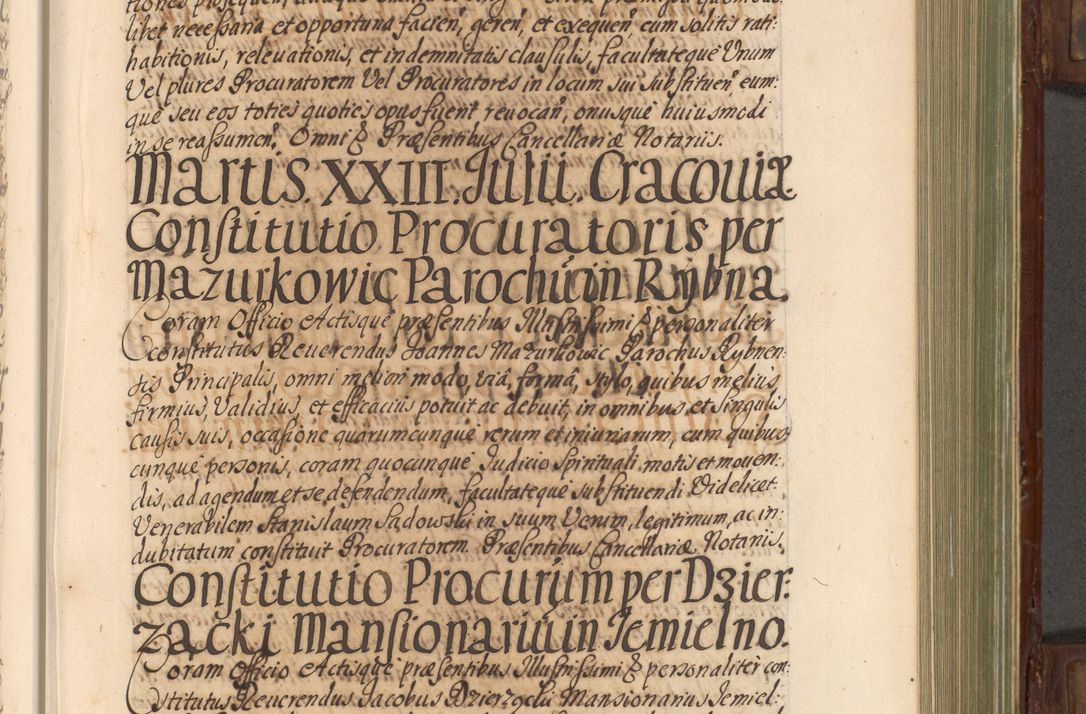 libet necessaria et opportuna facien', geren', et exequen', cum solitis rati:
habitionis, releuationis, et indemnitatis clausulis, facultateque Vnum
Vel plures Procuratorem Vel Procuratores in locum sui substituen', eum:
que seu eos toties quoties opus fuerit reuocan', onusque huiusmodi
in se reassumen'. Omni & Præsentibus Cancellariæ Notariis.
Martis. XXIII. Julii. Cracouiæ
Constitutio Procuratoris per
Mazurkowic Parochum in Rybna.
Coram Officio Actisque præsentibus Illustrissimi & personaliter
constitutus Reuerendus Joannes Mazurkowic Parochus Rybnen:
sis Principalis, omni meliori modo, viâ, formâ, stylo, quibus melius,
firmius, Validius, et efficacius potuit ac debuit, in omnibus et singulis
causis suis, occasione quarumcunque rerum et iniuriarum, cum quibus
cunque personis, coram quocunque Judicio Spirituali motis et mouen:
dis, ad agendum et se defendendum, facultateque substituendi Videlicet
Venerabilem Stanislaum Sadowski in suum Verum, legitimum, ac in:
dubitatum constituit Procuratorem. Præsentibus Cancellariæ Notariis.
Constitutio Procurum per Dzier:
zacki Mansionarium in Jemielno.
Coram Officio Actisque præsentibus Illustrissimi & personaliter con:
stitutus Reuerendus Jacobus Dzierzacki Mansionarius Jemiel: